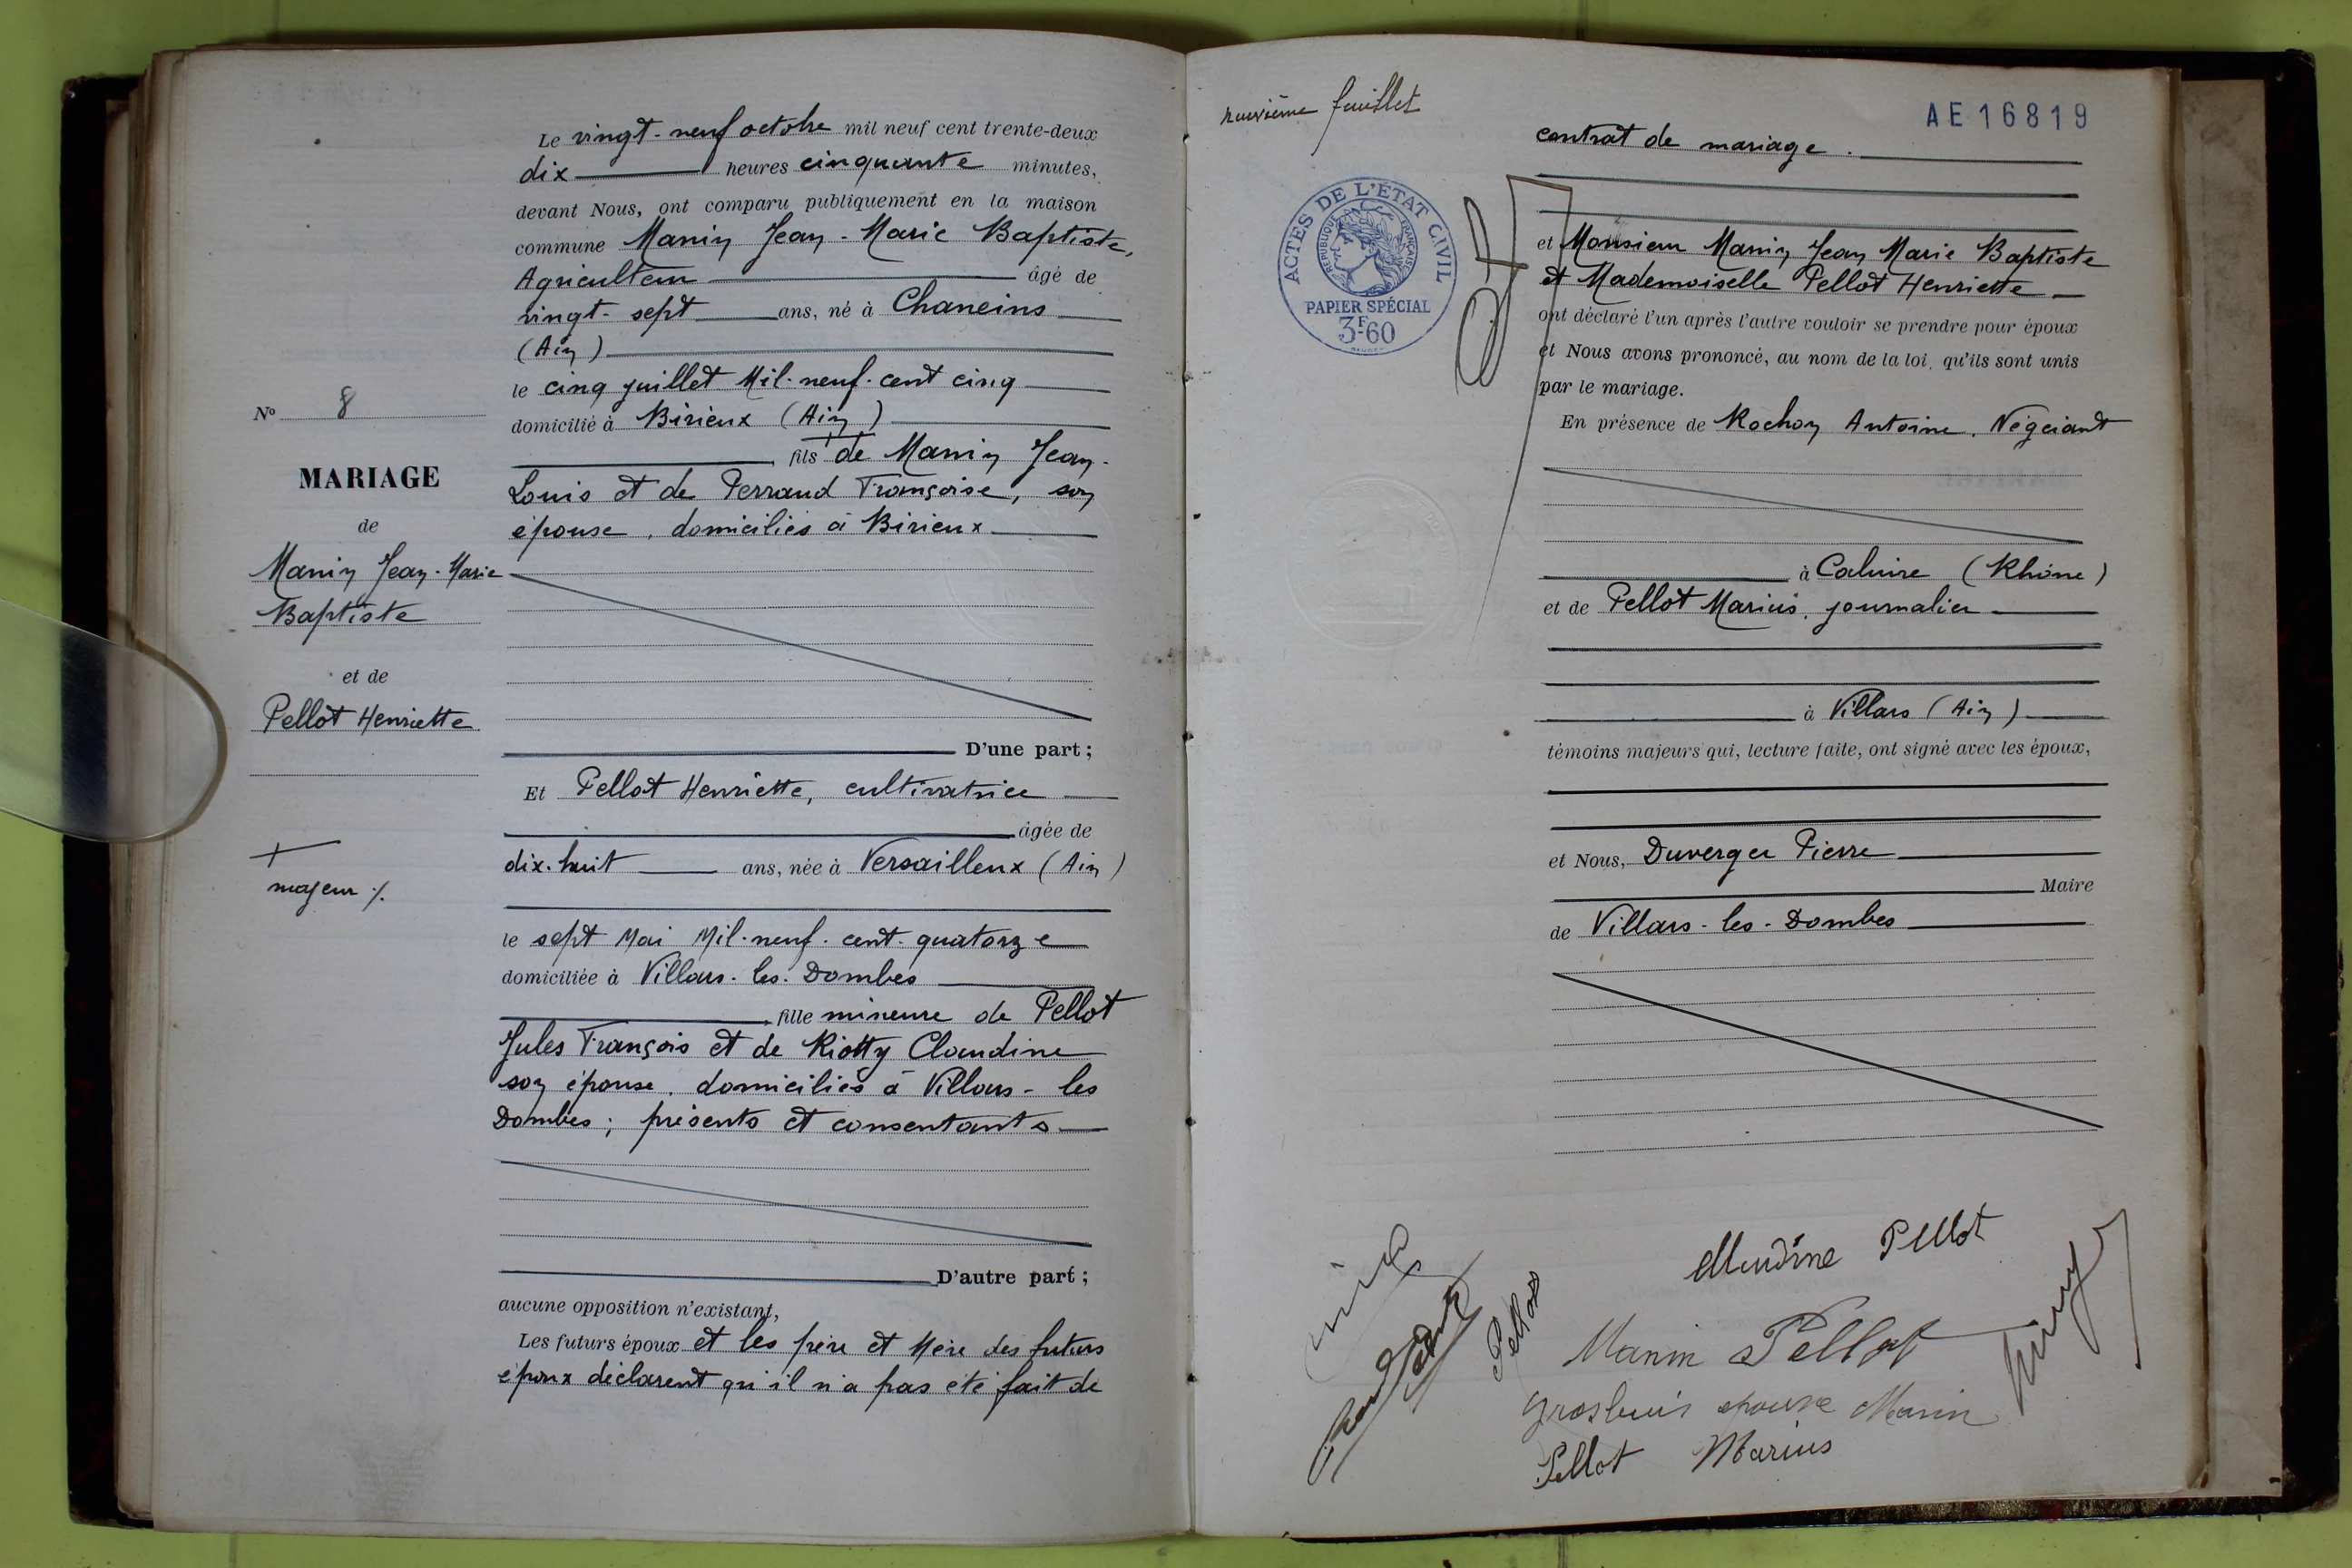 Le vingt-neuf octobre mil neuf cent trente-deux
dix heures cinquante minutes,
devant Nous, ont comparu publiquement en la maison
commune Manin Jean-Marie Baptiste,
Agriculteur âgé de
vingt-sept ans, né à Chaneins
(Ain)
le cinq juillet Mil-neuf-cent cinq
domicilié à Birieux (Ain)
fils de Manin Jean-
Louis et de Perraud Françoise, son
épouse, domiciliés à Birieux
D'une part ;
Et Pellot Henriette, cultivatrice
âgée de
dix-huit ans, née à Versailleux (Ain)
le sept Mai Mil-neuf-cent-quatorze
domiciliée à Villars-les-Dombes
fille mineure de Pellot
Jules François et de Riotty Claudine
son épouse, domiciliés à Villars-les
Dombes ; présents et consentants
D'autre part ;
aucune opposition n'existant,
Les futurs époux et les père et Mère des futurs
époux déclarent qu'il n'a pas été fait de
N° 8
MARIAGE
de
Manin Jean-Marie
Baptiste
et de
Pellot Henriette
majeur
neuvième feuillet
AE 16819
ACTES DE L'ÉTAT CIVIL
RÉPUBLIQUE FRANÇAISE
PAPIER SPÉCIAL
3F.60
contrat de mariage.
et Monsieur Manin Jean Marie Baptiste
et Mademoiselle Pellot Henriette
ont déclaré l'un après l'autre vouloir se prendre pour époux
et Nous avons prononcé, au nom de la loi, qu'ils sont unis
par le mariage.
En présence de Rochon Antoine, Négociant
à Caluire (Rhône)
et de Pellot Marius, journalier
à Villars (Ain)
témoins majeurs qui, lecture faite, ont signé avec les époux,
et Nous, Duverger Pierre
Maire
de Villars-les-Dombes
Pellot
Pellot
Manin Pellot
épouse Manin
Pellot Marius